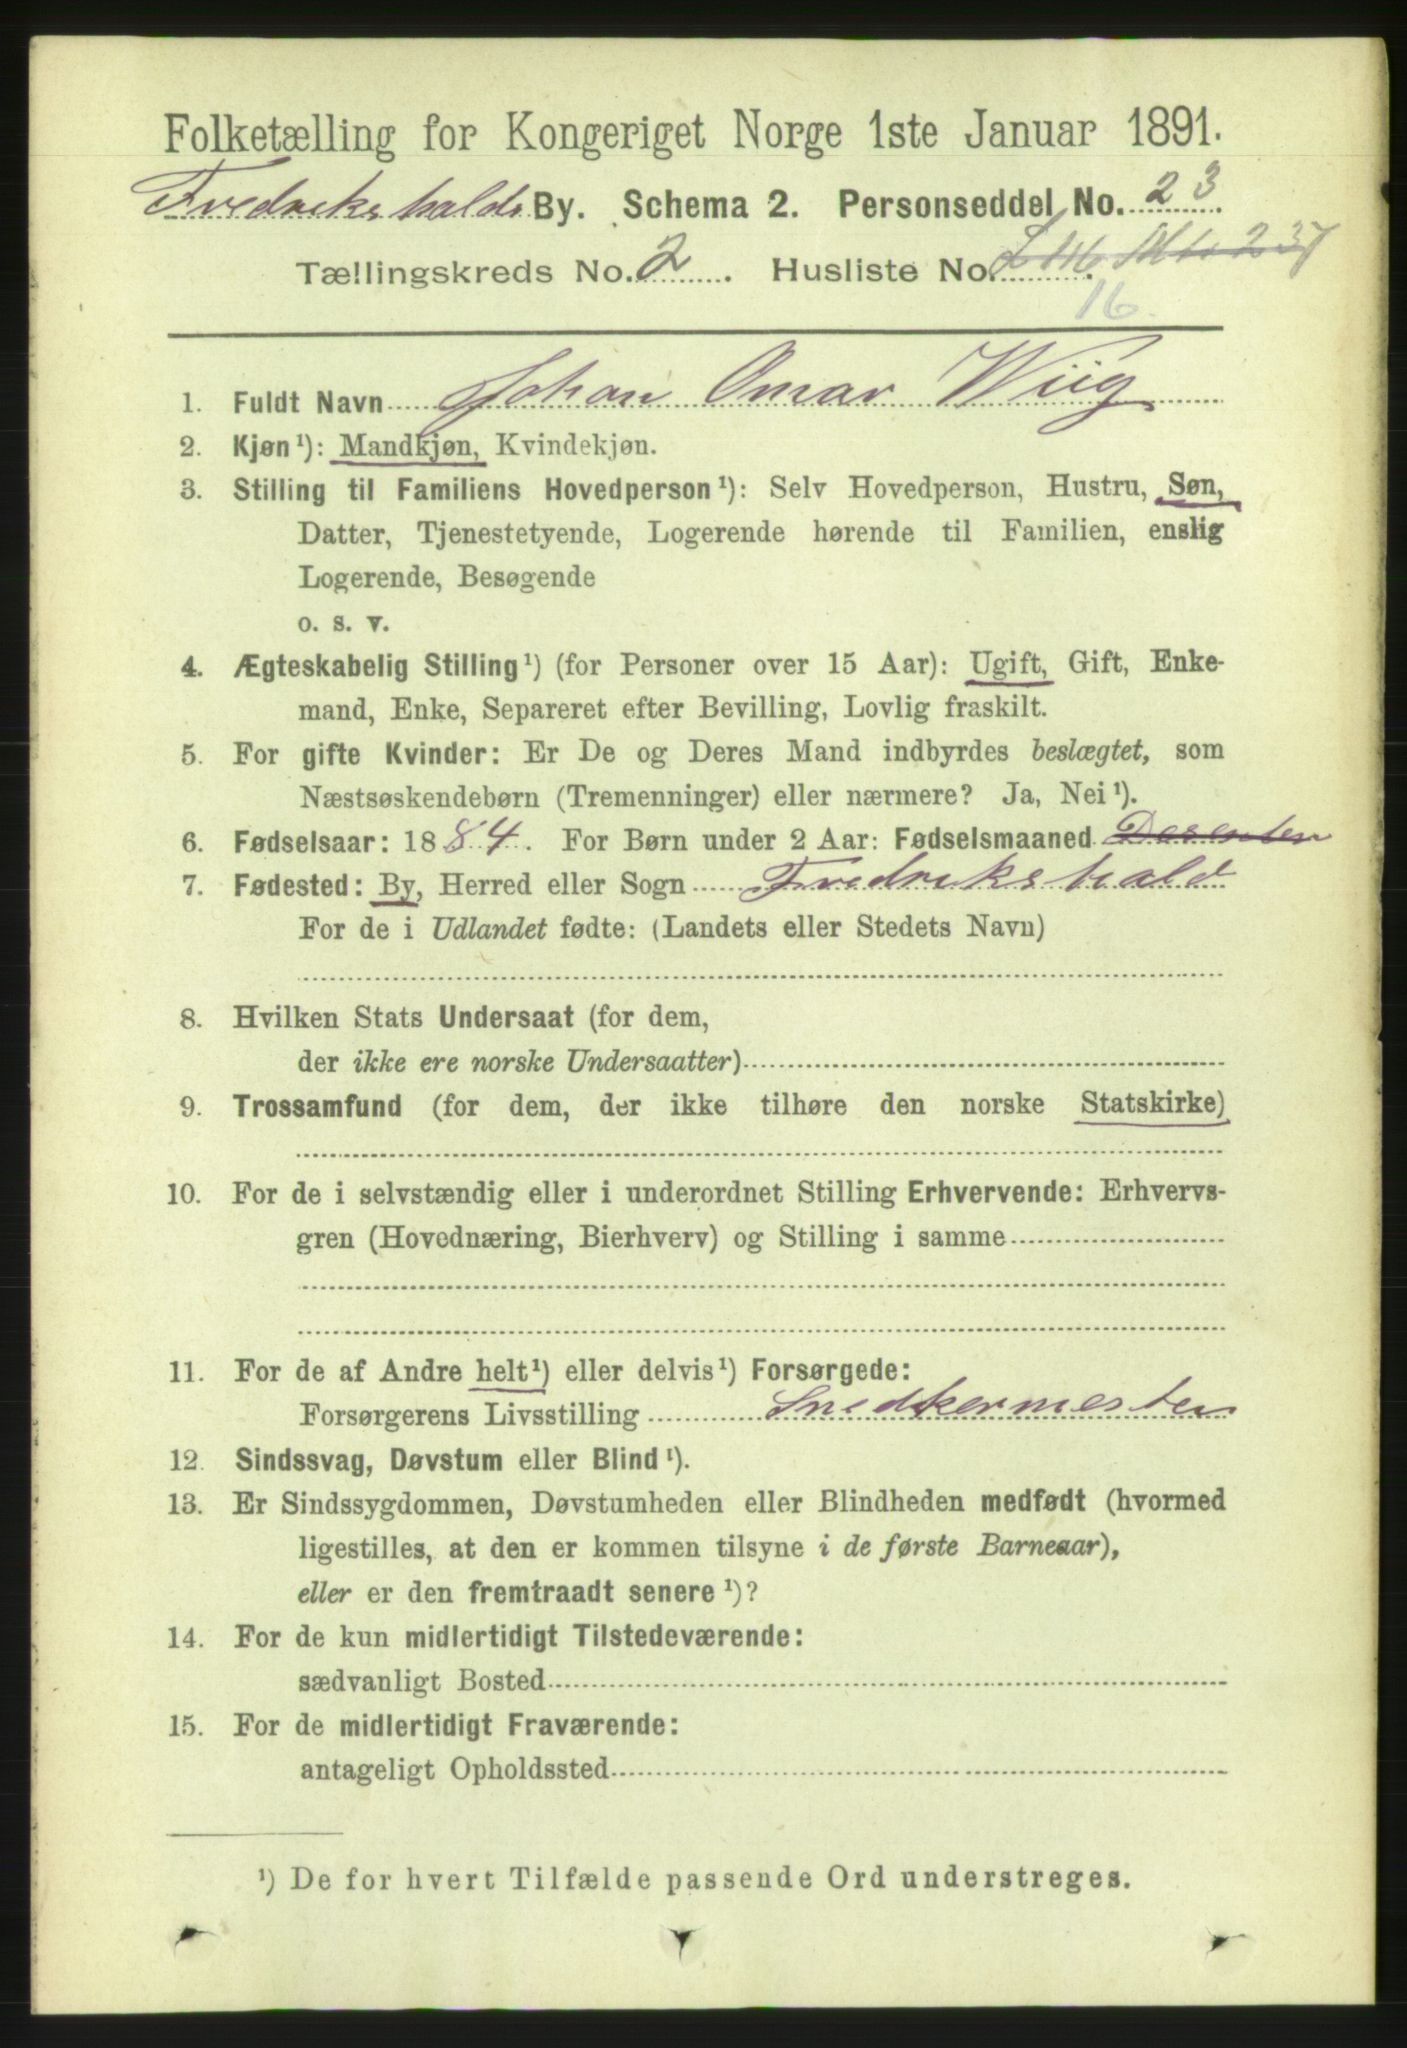 Folketælling for Kongeriget Norge 1ste Januar 1891.
Fredrikshalds By. Schema 2. Personseddel No. 23
Tællingskreds No. 2. Husliste No.
16.
1. Fuldt Navn Johan Omar Wiig
2. Kjøn¹): Mandkjøn, Kvindekjøn.
3. Stilling til Familiens Hovedperson¹): Selv Hovedperson, Hustru, Søn,
Datter, Tjenestetyende, Logerende hørende til Familien, enslig
Logerende, Besøgende
o. s. v.
4. Ægteskabelig Stilling¹) (for Personer over 15 Aar): Ugift, Gift, Enke-
mand, Enke, Separeret efter Bevilling, Lovlig fraskilt.
5. For gifte Kvinder: Er De og Deres Mand indbyrdes beslægtet, som
Næstsøskendebørn (Tremenninger) eller nærmere? Ja, Nei¹).
6. Fødselsaar: 1884. For Børn under 2 Aar: Fødselsmaaned
7. Fødested: By, Herred eller Sogn Fredrikshald
For de i Udlandet fødte: (Landets eller Stedets Navn)
8. Hvilken Stats Undersaat (for dem,
der ikke ere norske Undersaatter)
9. Trossamfund (for dem, der ikke tilhøre den norske Statskirke)
10. For de i selvstændig eller i underordnet Stilling Erhvervende: Erhvervs-
gren (Hovednæring, Bierhverv) og Stilling i samme
11. For de af Andre helt¹) eller delvis¹) Forsørgede:
Forsørgerens Livsstilling Snedkermester
12. Sindssvag, Døvstum eller Blind¹).
13. Er Sindssygdommen, Døvstumheden eller Blindheden medfødt (hvormed
ligestilles, at den er kommen tilsyne i de første Barneaar),
eller er den fremtraadt senere¹)?
14. For de kun midlertidigt Tilstedeværende:
sædvanligt Bosted
15. For de midlertidigt Fraværende:
antageligt Opholdssted
¹) De for hvert Tilfælde passende Ord understreges.